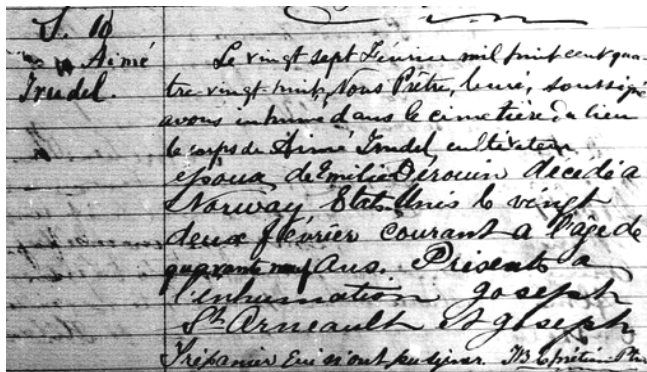 S. 10
Aimé
Trudel.
Le vingt sept Février mil huit cent qua-
tre-vingt-huit, Nous Prêtre, Curé, soussigné
avons inhumé dans le cimetière du lieu
le corps de Aimé Trudel, cultivateur
époux de Emilie Dérouin décédé à
Norway Etats-Unis le vingt
deux février courant a l'âge de
quarante neuf Ans. Présents a
l'inhumation Joseph
St. Arneault et Joseph
Trépanier Qui n'ont pu signer.